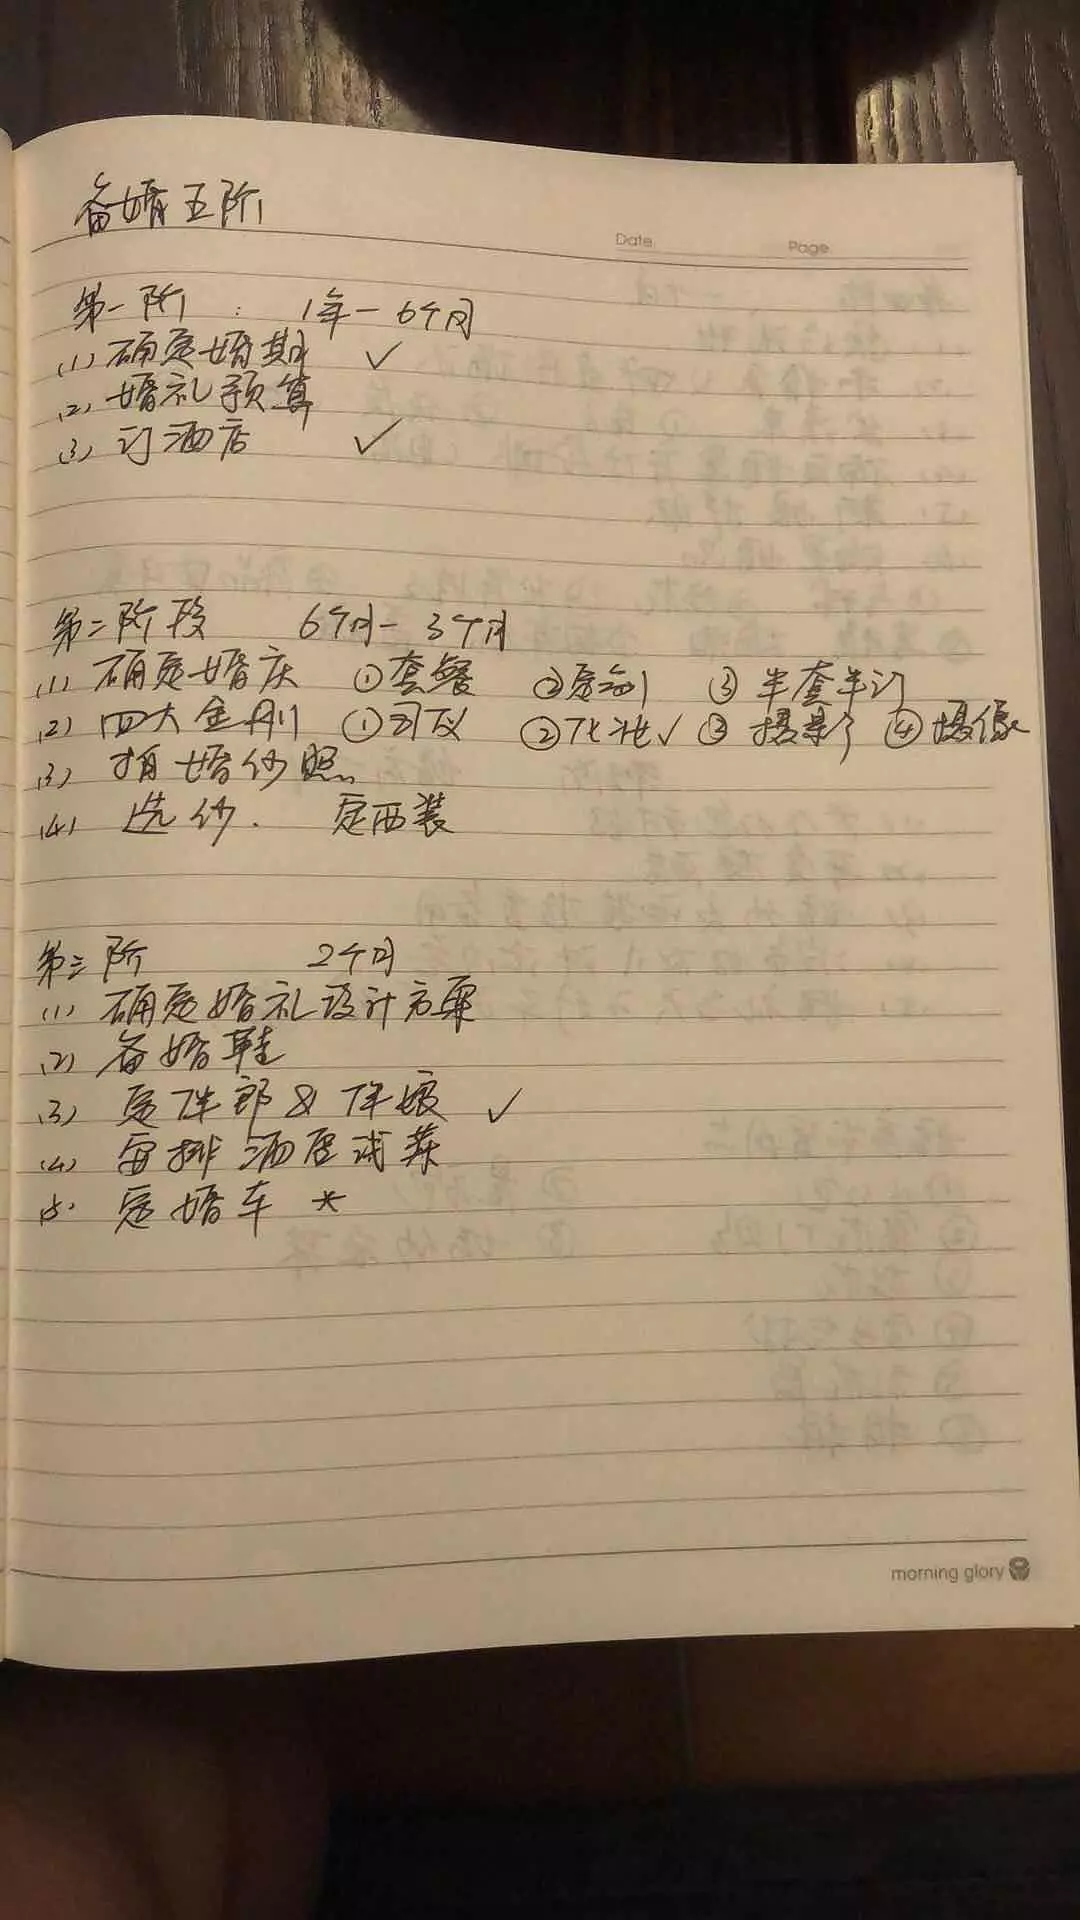 备婚五阶
Date. Page.
第一阶 : 1年-6个月
(1) 确定婚期 ✓
(2) 婚礼预算
(3) 订酒店 ✓
第二阶段 6个月-3个月
(1) 确定婚庆 ①套餐 ②定制 ③半套半订
(2) 四大金刚 ①司仪 ②化妆✓ ③摄影 ④摄像
(3) 拍婚纱照
(4) 选纱. 定西装
第三阶 2个月
(1) 确定婚礼设计方案
(2) 备婚鞋
(3) 定伴郎&伴娘 ✓
(4) 安排酒店试菜
(5) 定婚车 *
morning glory